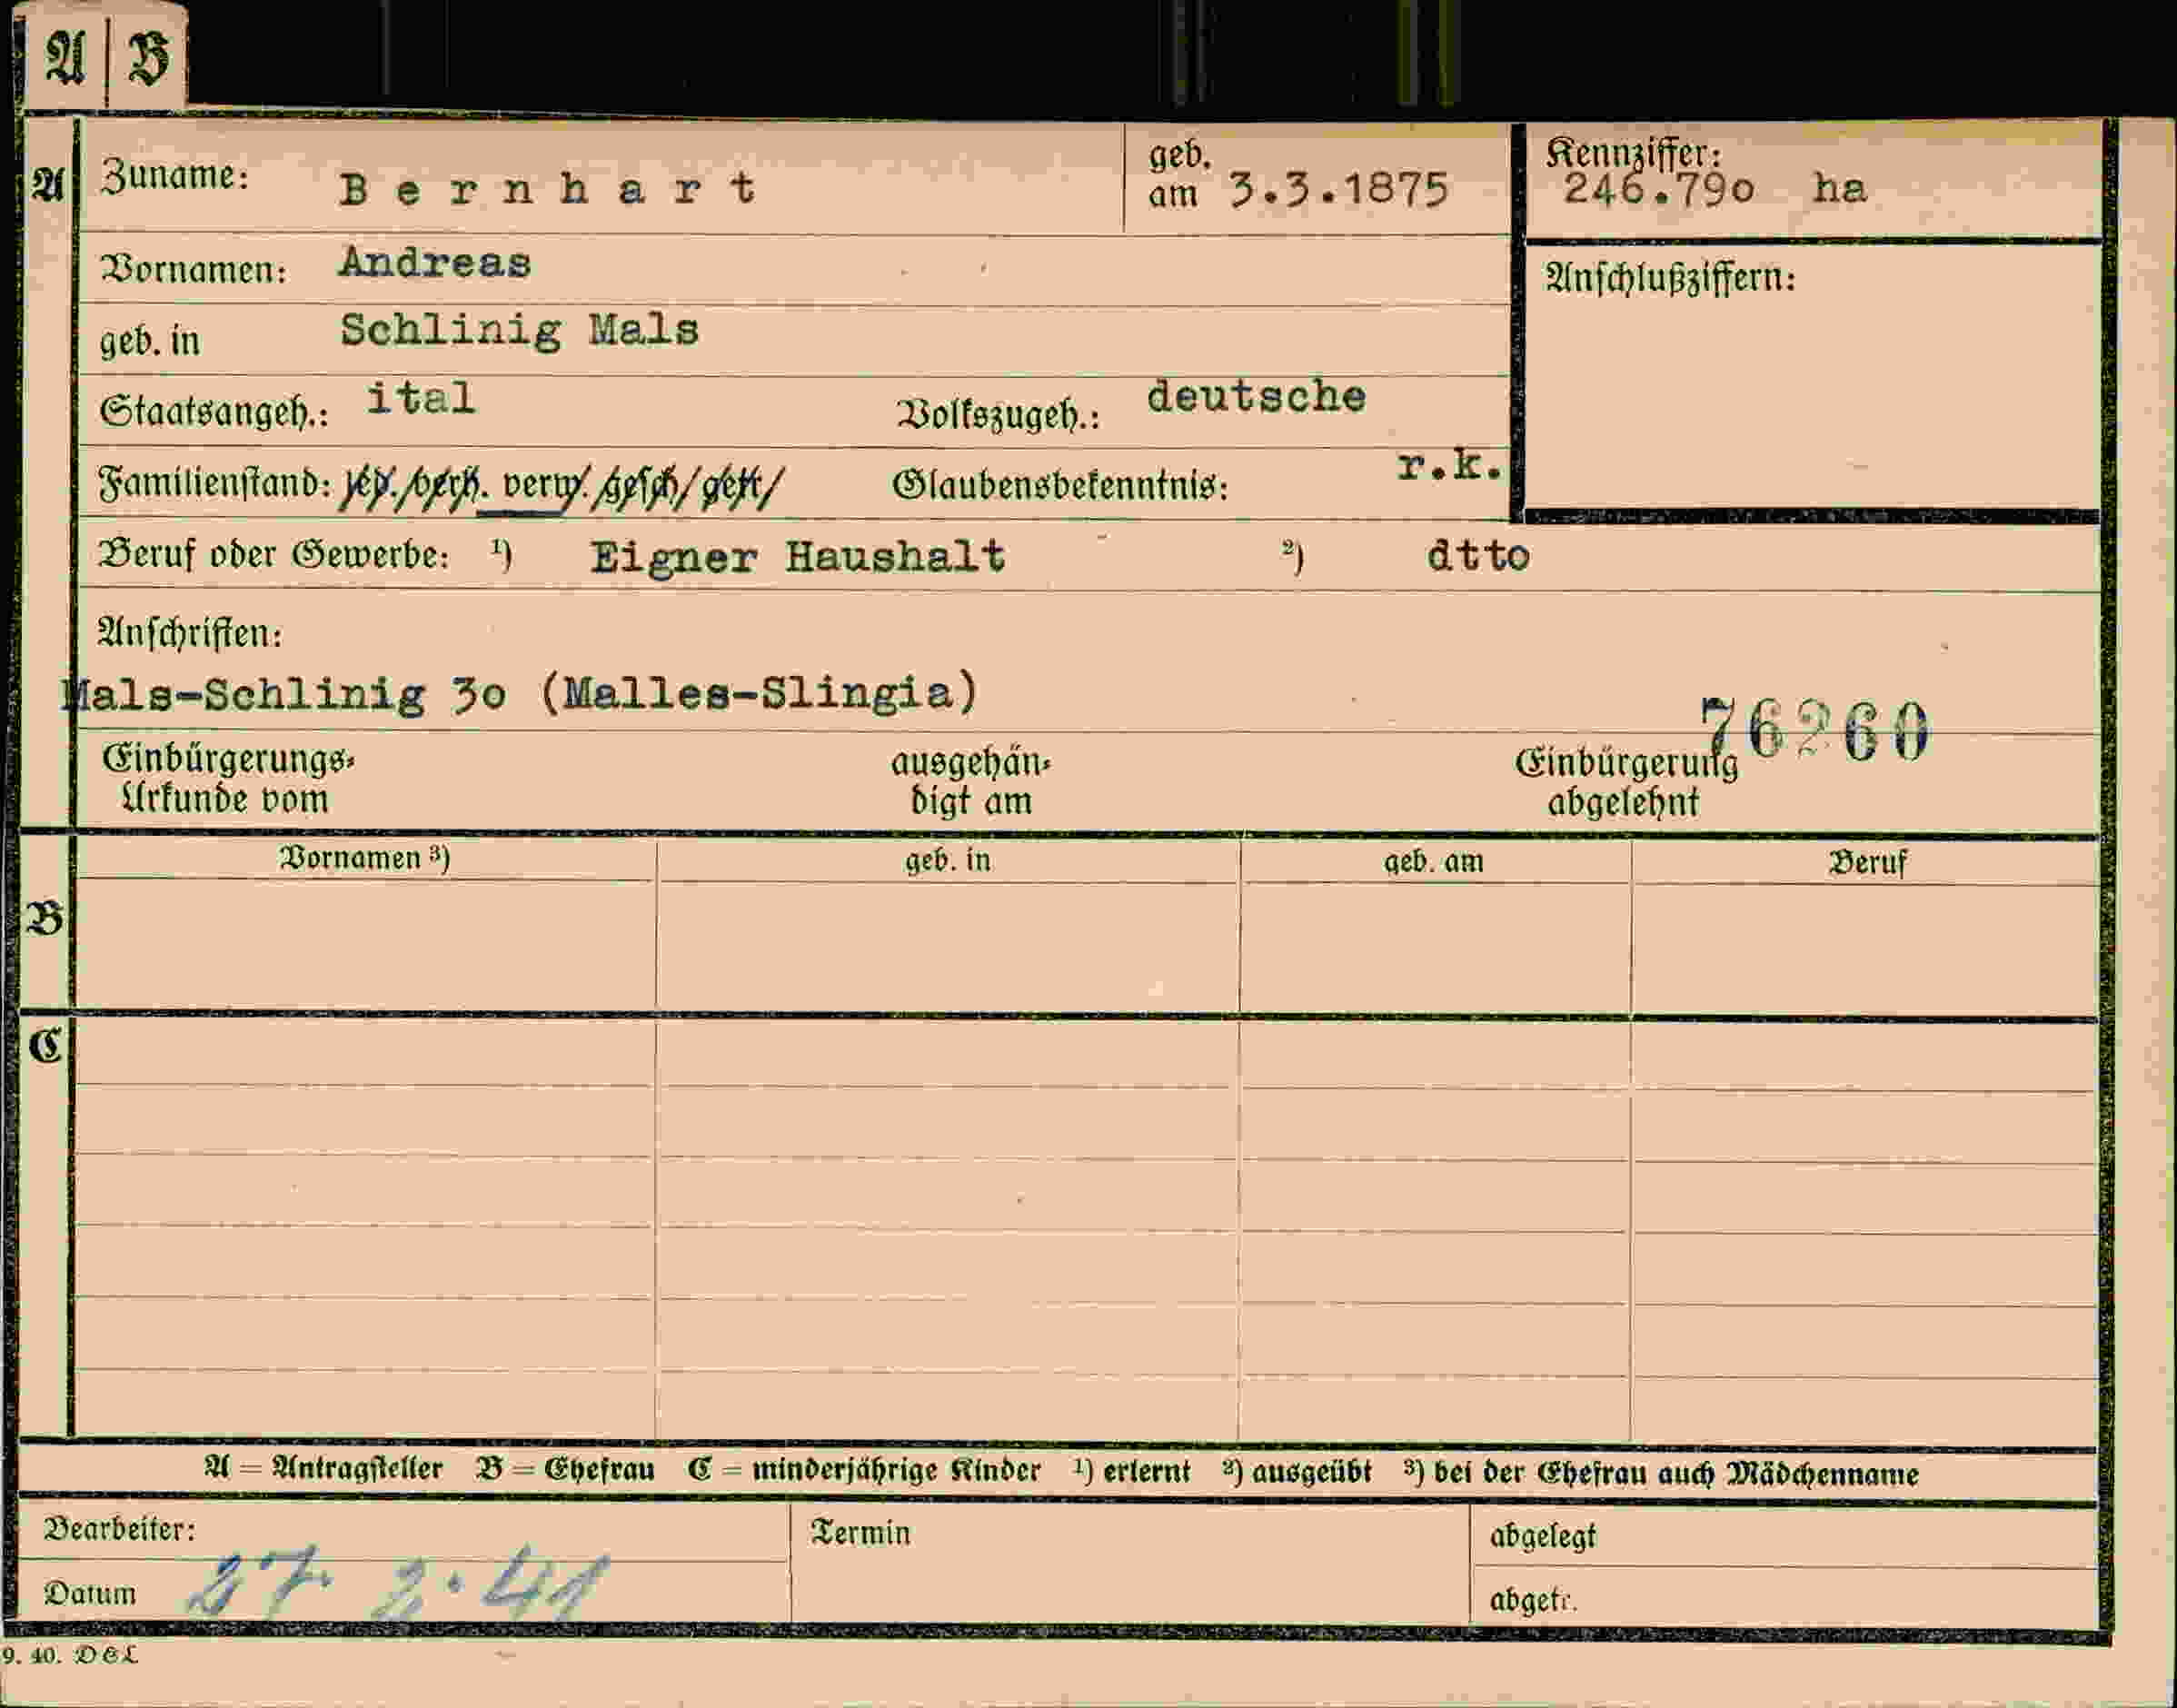 A | B
A Zuname: Bernhart geb. am 3.3.1875 Kennziffer: 246.79o ha
Vornamen: Andreas Anschlußziffern:
geb. in Schlinig Mals
Staatsangeh.: ital Volkszugeh.: deutsche
Familienstand: led. verh. verw. gesch. getr. Glaubensbekenntnis: r.k.
Beruf oder Gewerbe: ¹) Eigner Haushalt ²) dtto
Anschriften:
Mals-Schlinig 3o (Malles-Slingia)
76260
Einbürgerungs- ausgehän- Einbürgerung
Urkunde vom digt am abgelehnt
Vornamen ³) geb. in geb. am Beruf
B
C
A = Antragsteller B = Ehefrau C = minderjährige Kinder ¹) erlernt ²) ausgeübt ³) bei der Ehefrau auch Mädchenname
Bearbeiter: Termin abgelegt
Datum 27. 2. 41 abgetr.
9. 40. DEL